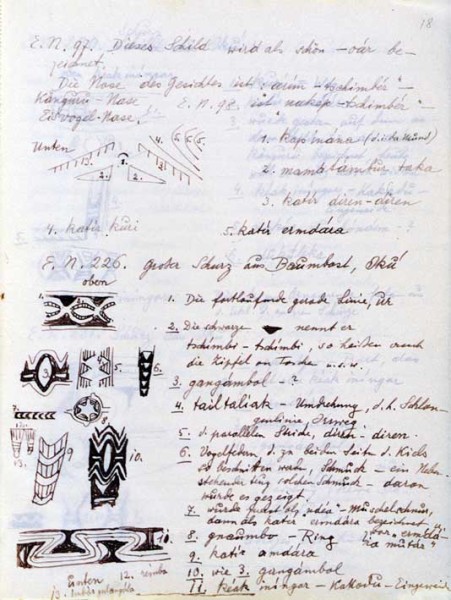 18
E.N. 97. Dieses Schild wird als schön – oár be-
zeichnet.
Die Nase des Gesichtes ist: "arum – tschimbér" –
Känguru-Nase E.N. 98. ist "nakap – tschimbér" –
Eisvogel-Nase.
Unten
1. Kopmána
2. mamblámbur, taka
3. katír diren-diren
4. katír kuri 5. katír ermdára
E.N. 226. großer Schurz aus Baumbast, Oká
oben
1. Die fortlaufende gerade Linie, ur
2. Die schwarze nennt er
tschimbi – tschimbi, so heißen auch
die Zipfel an Tasche u.s.w.
3. gangámbol – ?
4. tailtaliak – Umdrehung, d.h. Schlan-
genlinie
5. d. parallelen Striche, diren-diren.
6. Vogelfedern, d. zu beiden Seiten d. Kiels
so beschnitten waren, Schmuck – ein Neben-
stehender trug solchen Schmuck – daran
wurde es gezeigt.
7. wurde zuerst als Muschelschnur,
dann als katír ermdára bezeichnet
8. gnaúmbo – Ring
9. katír amdára
10. wie 3. gangámbol
11. Keák míngar – Kakadu – Eingeweide
unten 12.
13.